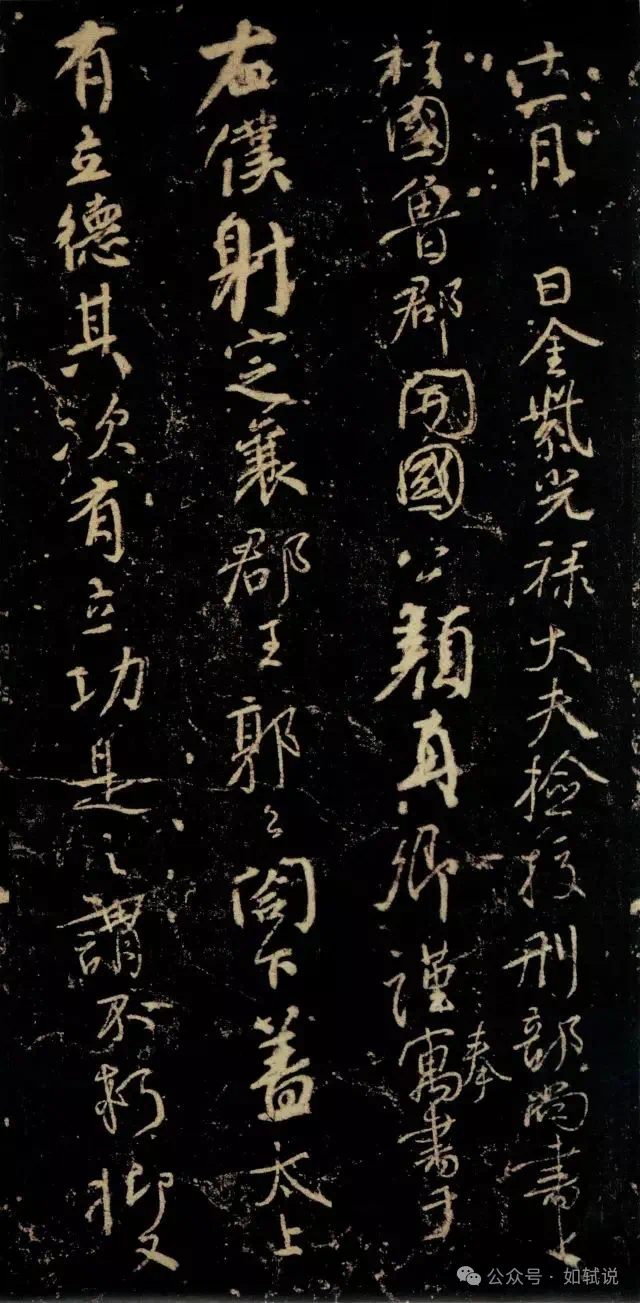 十一月 日金紫光祿大夫檢校刑部尚書上
柱國魯郡開國公顏真卿謹奉寓書于
右僕射定襄郡王郭公閤下蓋太上
有立德其次有立功是之謂不朽抑又
公众号·如轼说